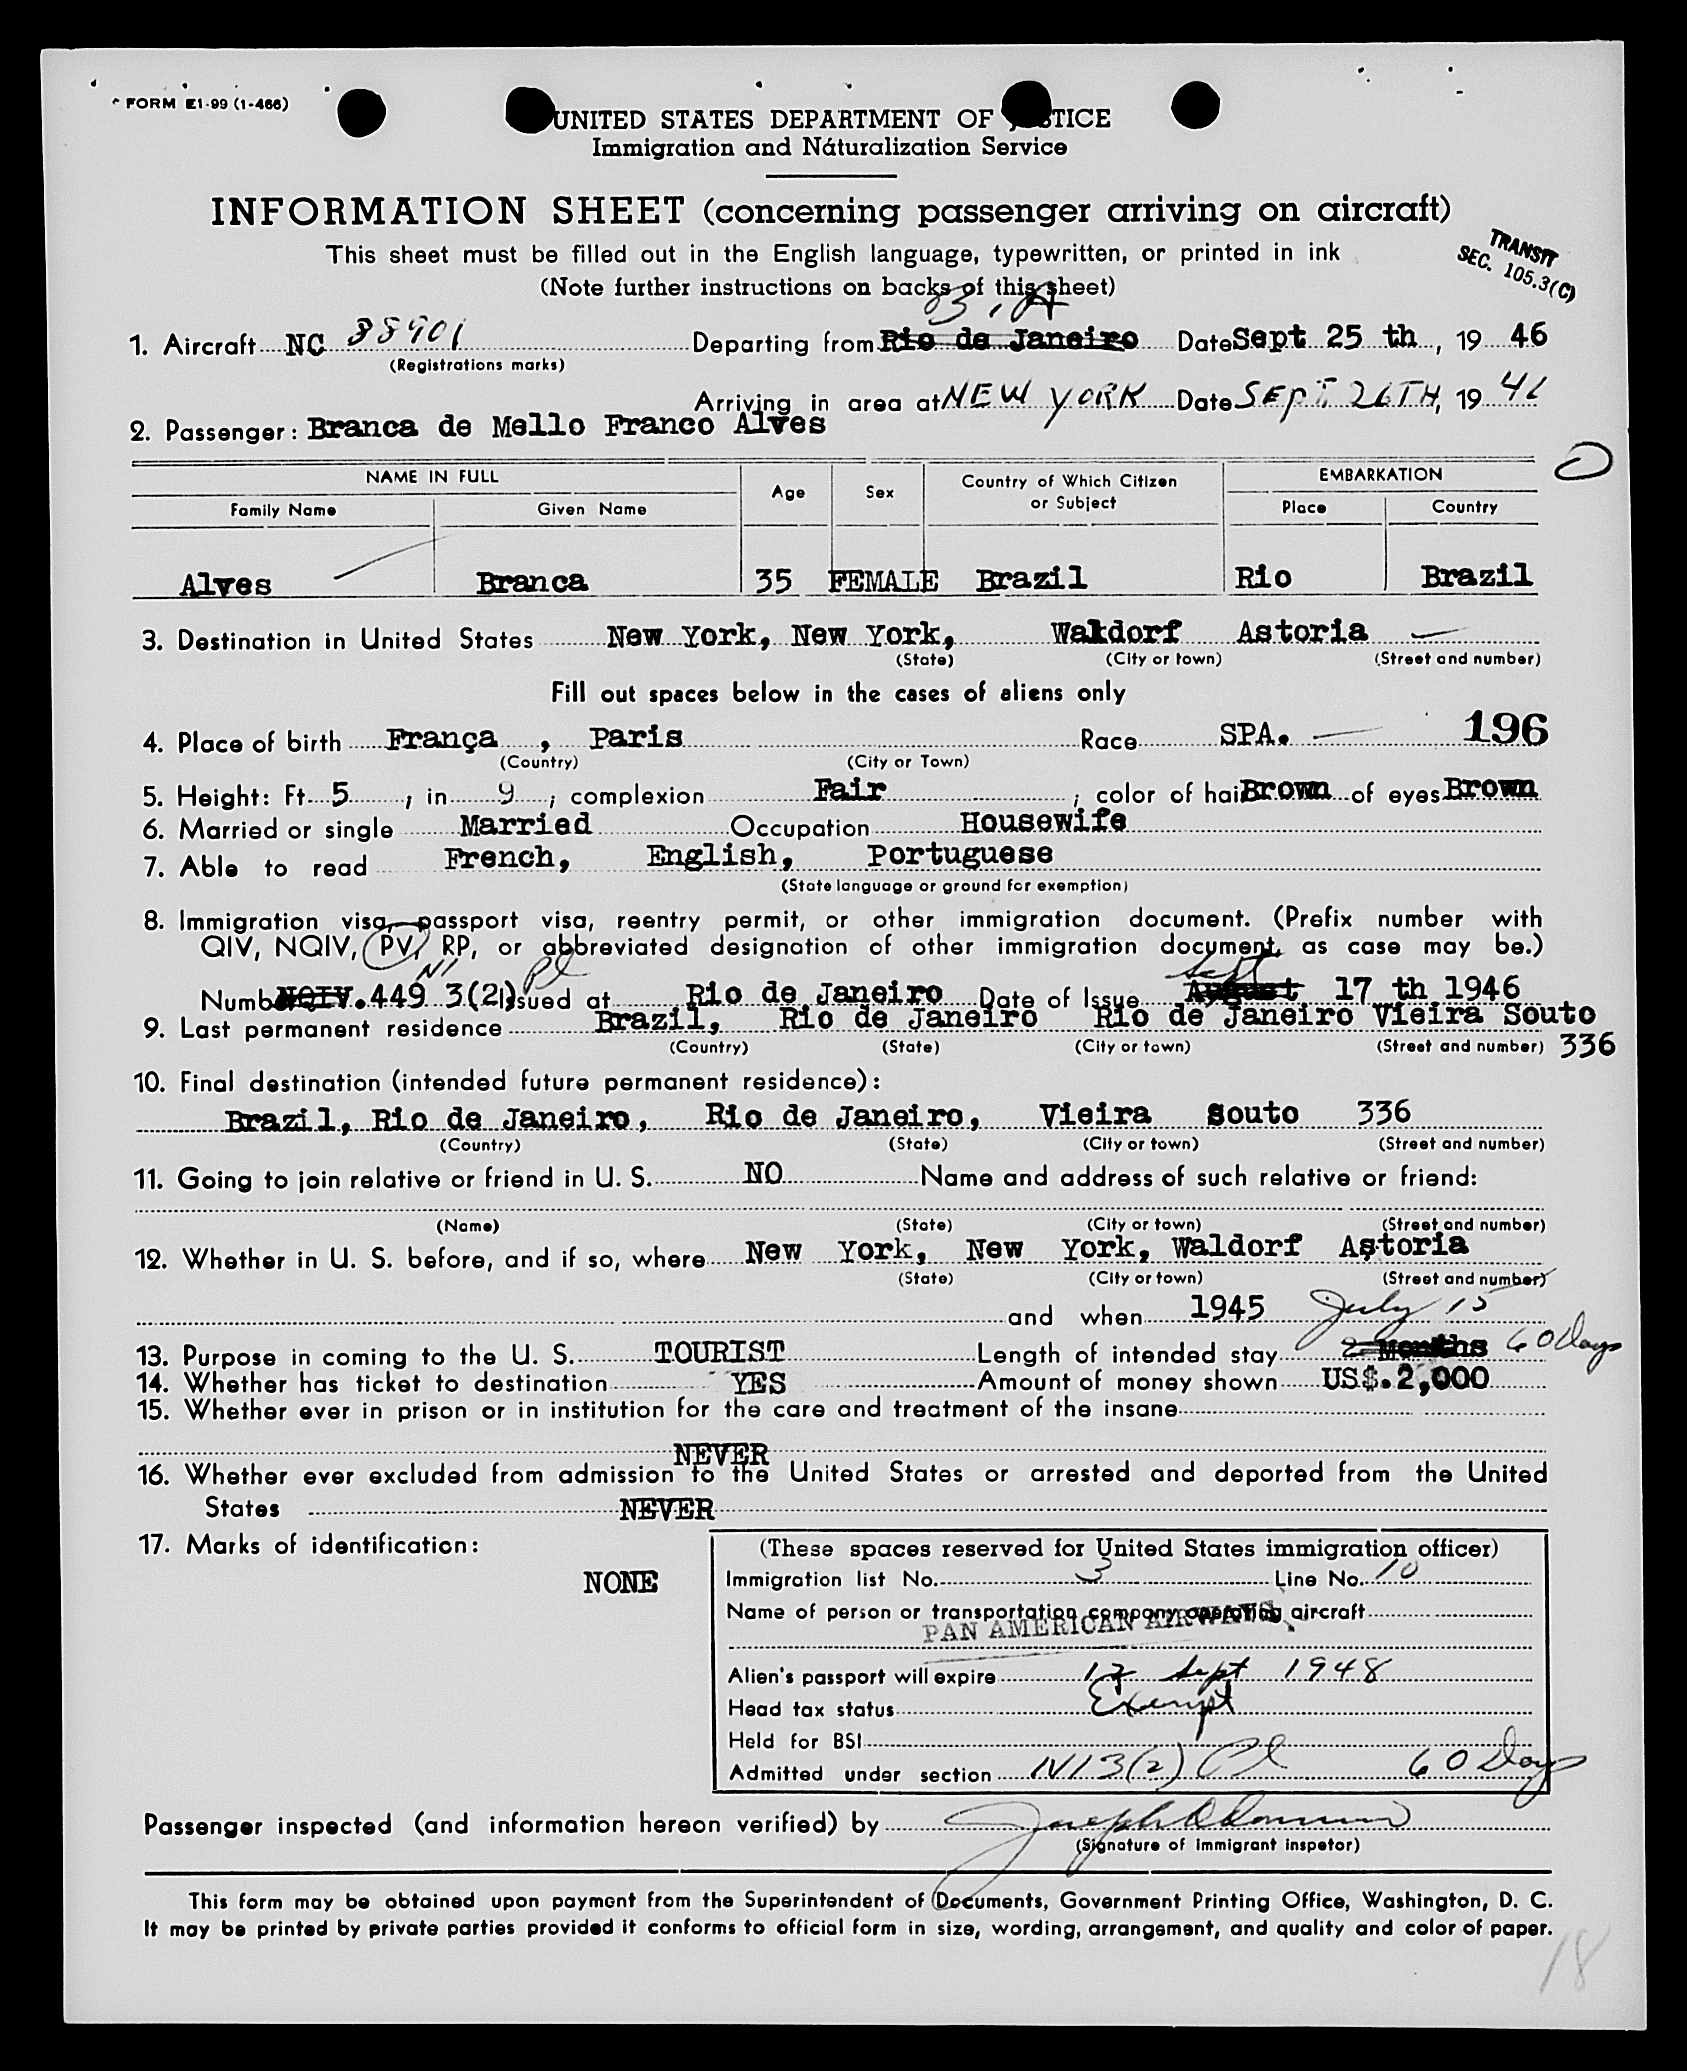 FORM E1-99 (1-466)
UNITED STATES DEPARTMENT OF JUSTICE
Immigration and Naturalization Service
INFORMATION SHEET (concerning passenger arriving on aircraft)
This sheet must be filled out in the English language, typewritten, or printed in ink
(Note further instructions on backs of this sheet)
TRANSIT
SEC. 105.3(C)
B.A
1. Aircraft NC 88901 Departing from Rio de Janeiro Date Sept 25 th, 19 46
(Registrations marks)
Arriving in area at NEW YORK Date SEPT. 26TH, 19 46
2. Passenger: Branca de Mello Franco Alves
NAME IN FULL Age Sex Country of Which Citizen or Subject EMBARKATION
Family Name Given Name Place Country
Alves Branca 35 FEMALE Brazil Rio Brazil
3. Destination in United States New York, New York, Waldorf Astoria
(State) (City or town) (Street and number)
Fill out spaces below in the cases of aliens only
4. Place of birth França, Paris Race SPA. 196
(Country) (City or Town)
5. Height: Ft. 5, in 9; complexion Fair; color of hair Brown of eyes Brown
6. Married or single Married Occupation Housewife
7. Able to read French, English, Portuguese
(State language or ground for exemption)
8. Immigration visa, passport visa, reentry permit, or other immigration document. (Prefix number with
QIV, NQIV, PV, RP, or abbreviated designation of other immigration document, as case may be.)
NI Pl Sept
Number NQIV. 449 3(2) Issued at Rio de Janeiro Date of Issue August 17 th 1946
9. Last permanent residence Brazil, Rio de Janeiro Rio de Janeiro Vieira Souto
(Country) (State) (City or town) (Street and number) 336
10. Final destination (intended future permanent residence):
Brazil, Rio de Janeiro, Rio de Janeiro, Vieira Souto 336
(Country) (State) (City or town) (Street and number)
11. Going to join relative or friend in U. S. NO Name and address of such relative or friend:
(Name) (State) (City or town) (Street and number)
12. Whether in U. S. before, and if so, where New York, New York, Waldorf Astoria
(State) (City or town) (Street and number)
and when 1945 July 15
13. Purpose in coming to the U. S. TOURIST Length of intended stay 2 Months 60 Days
14. Whether has ticket to destination YES Amount of money shown US$.2,000
15. Whether ever in prison or in institution for the care and treatment of the insane
NEVER
16. Whether ever excluded from admission to the United States or arrested and deported from the United
States NEVER
17. Marks of identification:
NONE
(These spaces reserved for United States immigration officer)
Immigration list No. 3 Line No. 10
Name of person or transportation company operating aircraft
PAN AMERICAN AIRWAYS
Alien's passport will expire 17 Sept 1948
Head tax status Exempt
Held for BSI
Admitted under section NI 3(2) Pl 60 Days
Passenger inspected (and information hereon verified) by
(Signature of Immigrant Inspetor)
This form may be obtained upon payment from the Superintendent of Documents, Government Printing Office, Washington, D. C.
It may be printed by private parties provided it conforms to official form in size, wording, arrangement, and quality and color of paper.
18